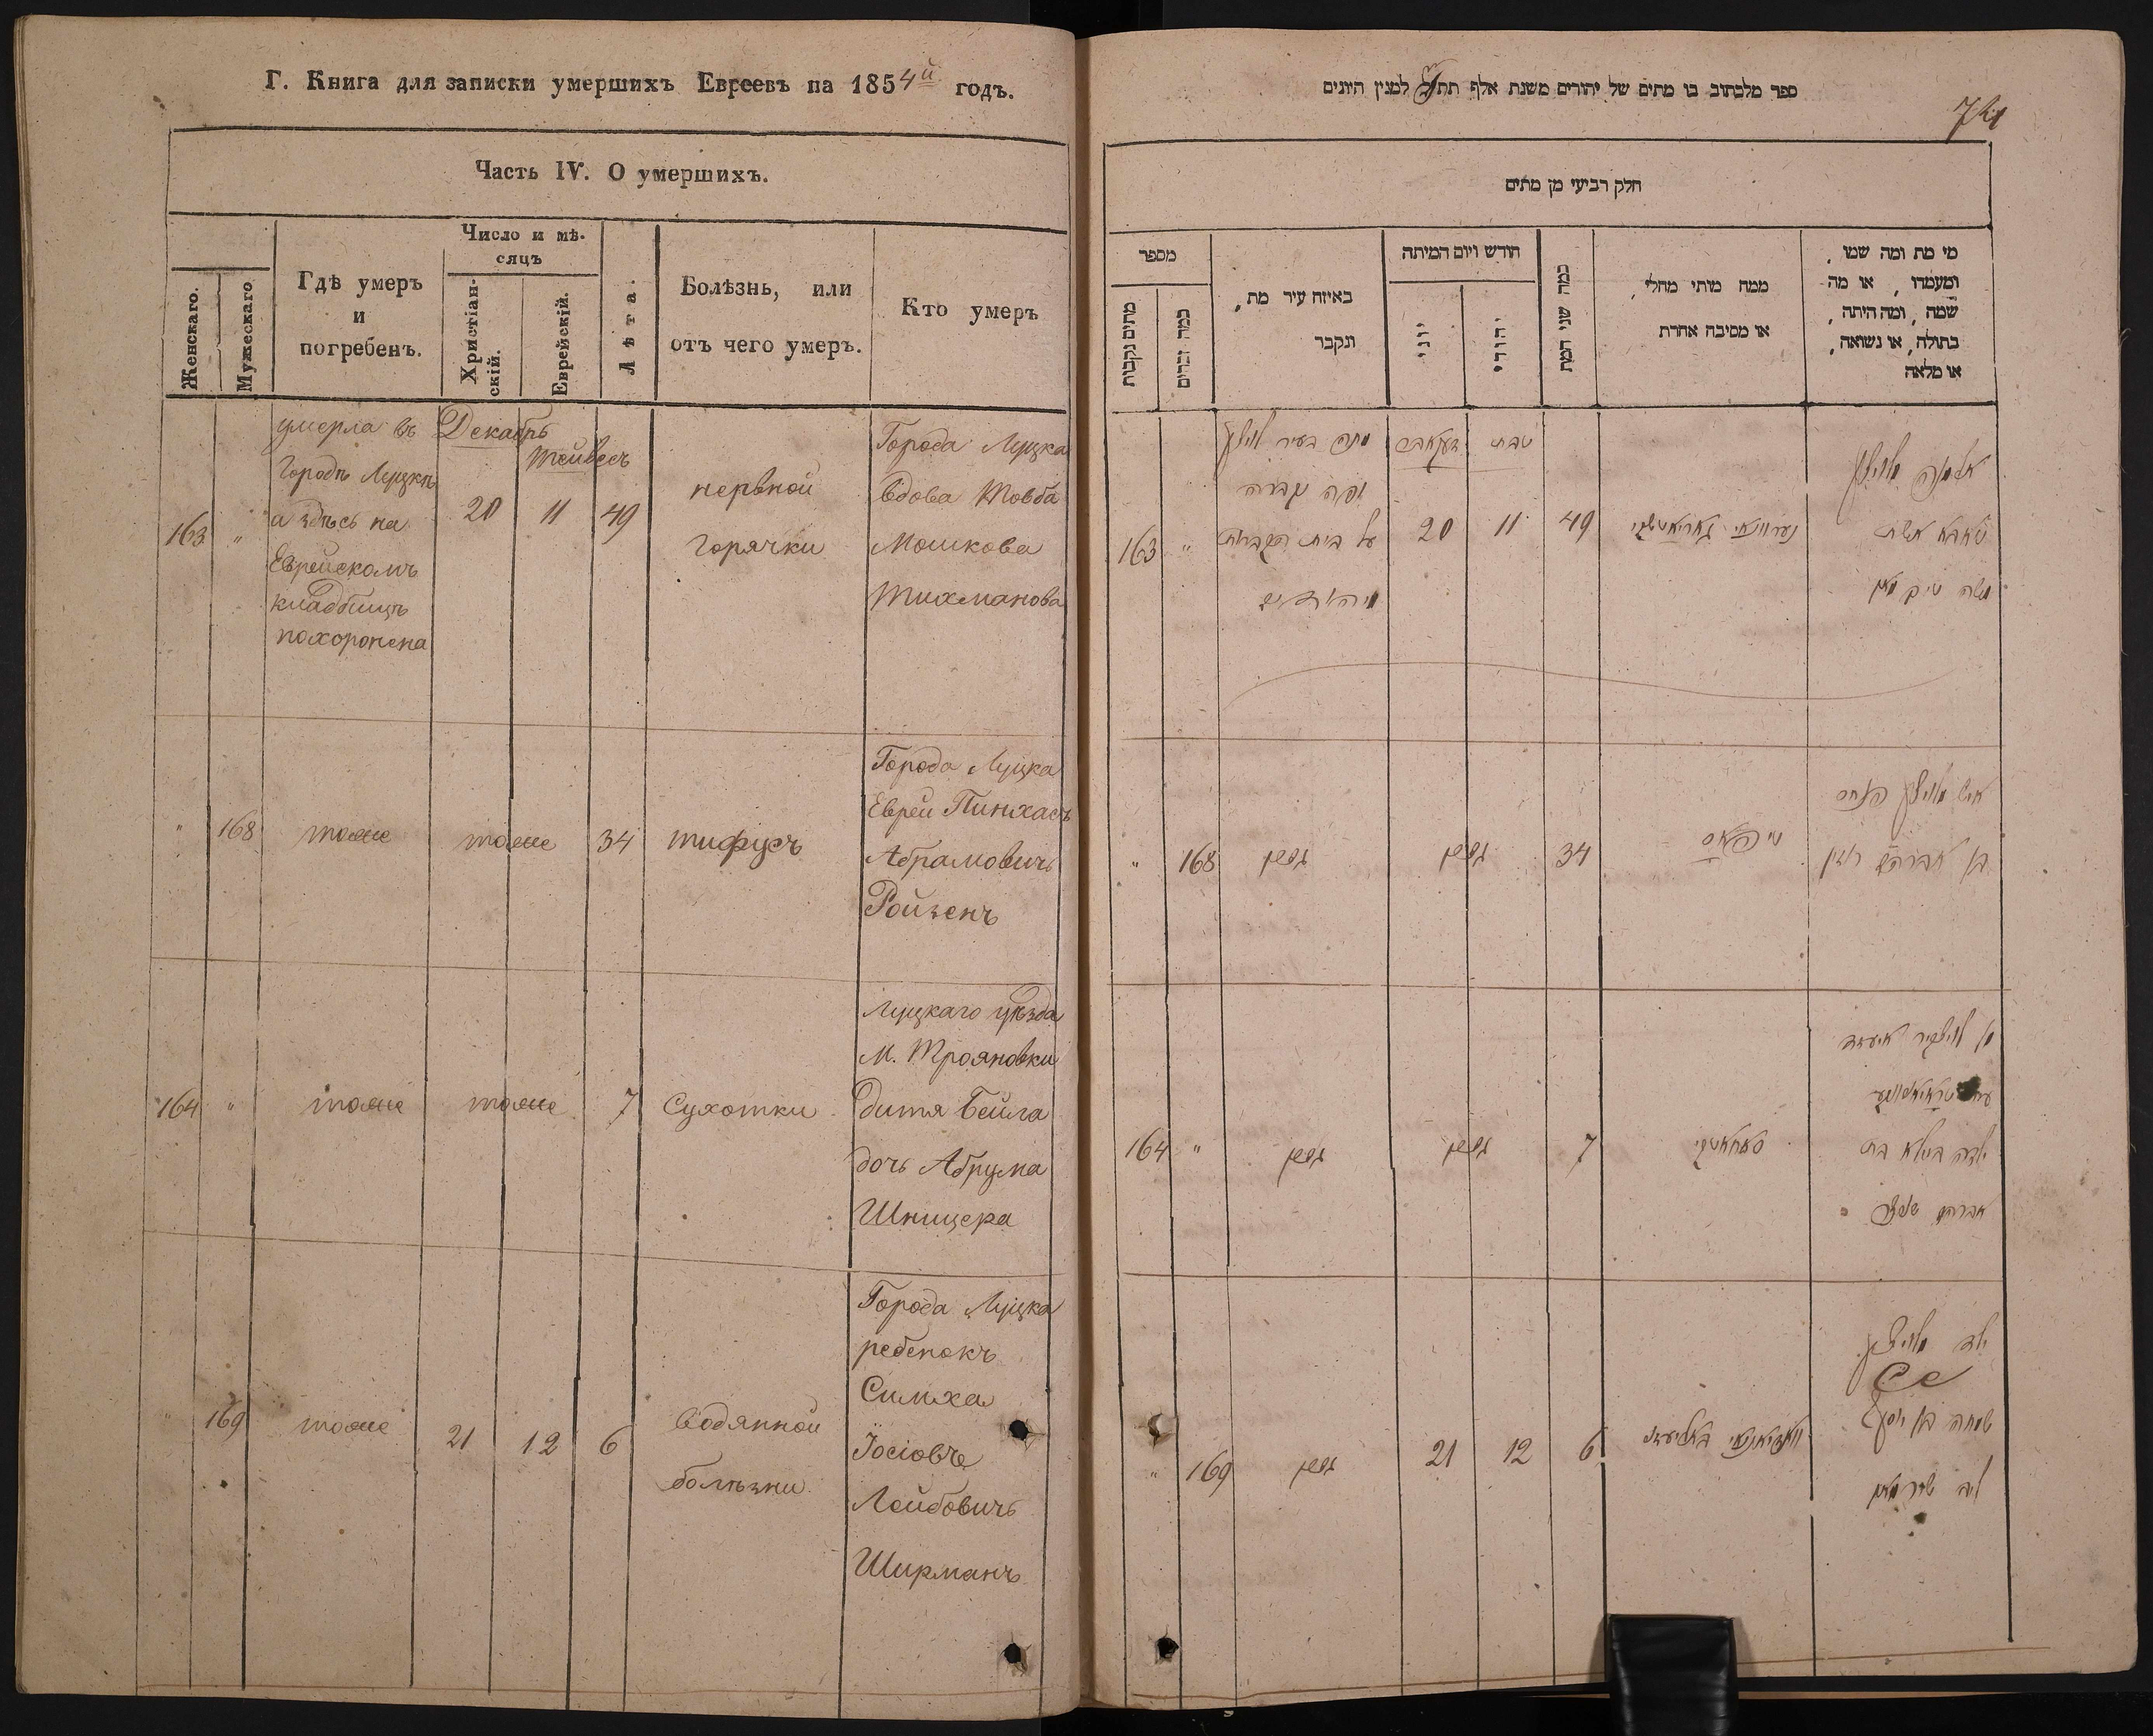 Г. Книга для записки умершихъ Евреевъ на 1854й годъ.
Часть IV. О умершихъ.
Женскаго.
Мужескаго
Гдѣ умеръ
и
погребенъ.
Число и мѣ-
сяцъ
Христіан-
скій.
Еврейскій.
Лѣта.
Болѣзнь, или
отъ чего умеръ.
Кто умеръ
163 "
умерла въ
городѣ Луцкѣ
а здѣсь на
Еврейскомъ
кладбищѣ
похоронена
Декабрь
тейвесъ
20 11 49
нервной
горячки
Города Луцка
вдова Товба
Мошкова
Тихманова
" 168 тоже тоже 34 тифусъ
Города Луцка
Еврей Пинхасъ
Абрамовичъ
Ройзенъ
164 " тоже тоже 7 Сухотки
Луцкаго уѣзда
М. Трояновки
дитя Бейла
дочь Абрума
Шницера
169 тоже 21 12 6
водянной
болѣзни
Города Луцка
ребенокъ
Симха
Іосіовъ
Лейбовичъ
Ширманъ
ספר מלכתוב בו מתים של יהודים משנת אלף תת למנין היונים
חלק רביעי מן מתים
מספר
מתים נקבות
כמה זכרים
באיזה עיר מת,
ונקבר
חודש ויום המיתה
יוני
יהודי
כמה שני המת
ממה מותי מחלי,
או מסיבה אחרת
מי מת ומה שמו,
ומעמדו, או מה
שמה, ומה היתה,
בתולה, או נשואה,
או מלאה
163 "
מתה בעיר
ופה נקברה
על בית הקברות
דעקאבר
טבת
20 11 49
אלמנה
טאבא אשת
משה טיכמאן
" 168
34
טיפאס
בן אברהם רויזן
164 "
7
סאחאטקי
ילדה ביילא בת
אברהם
" 169
21 12 6
ילד
שמחה בן יוסף
ליב שירמאן